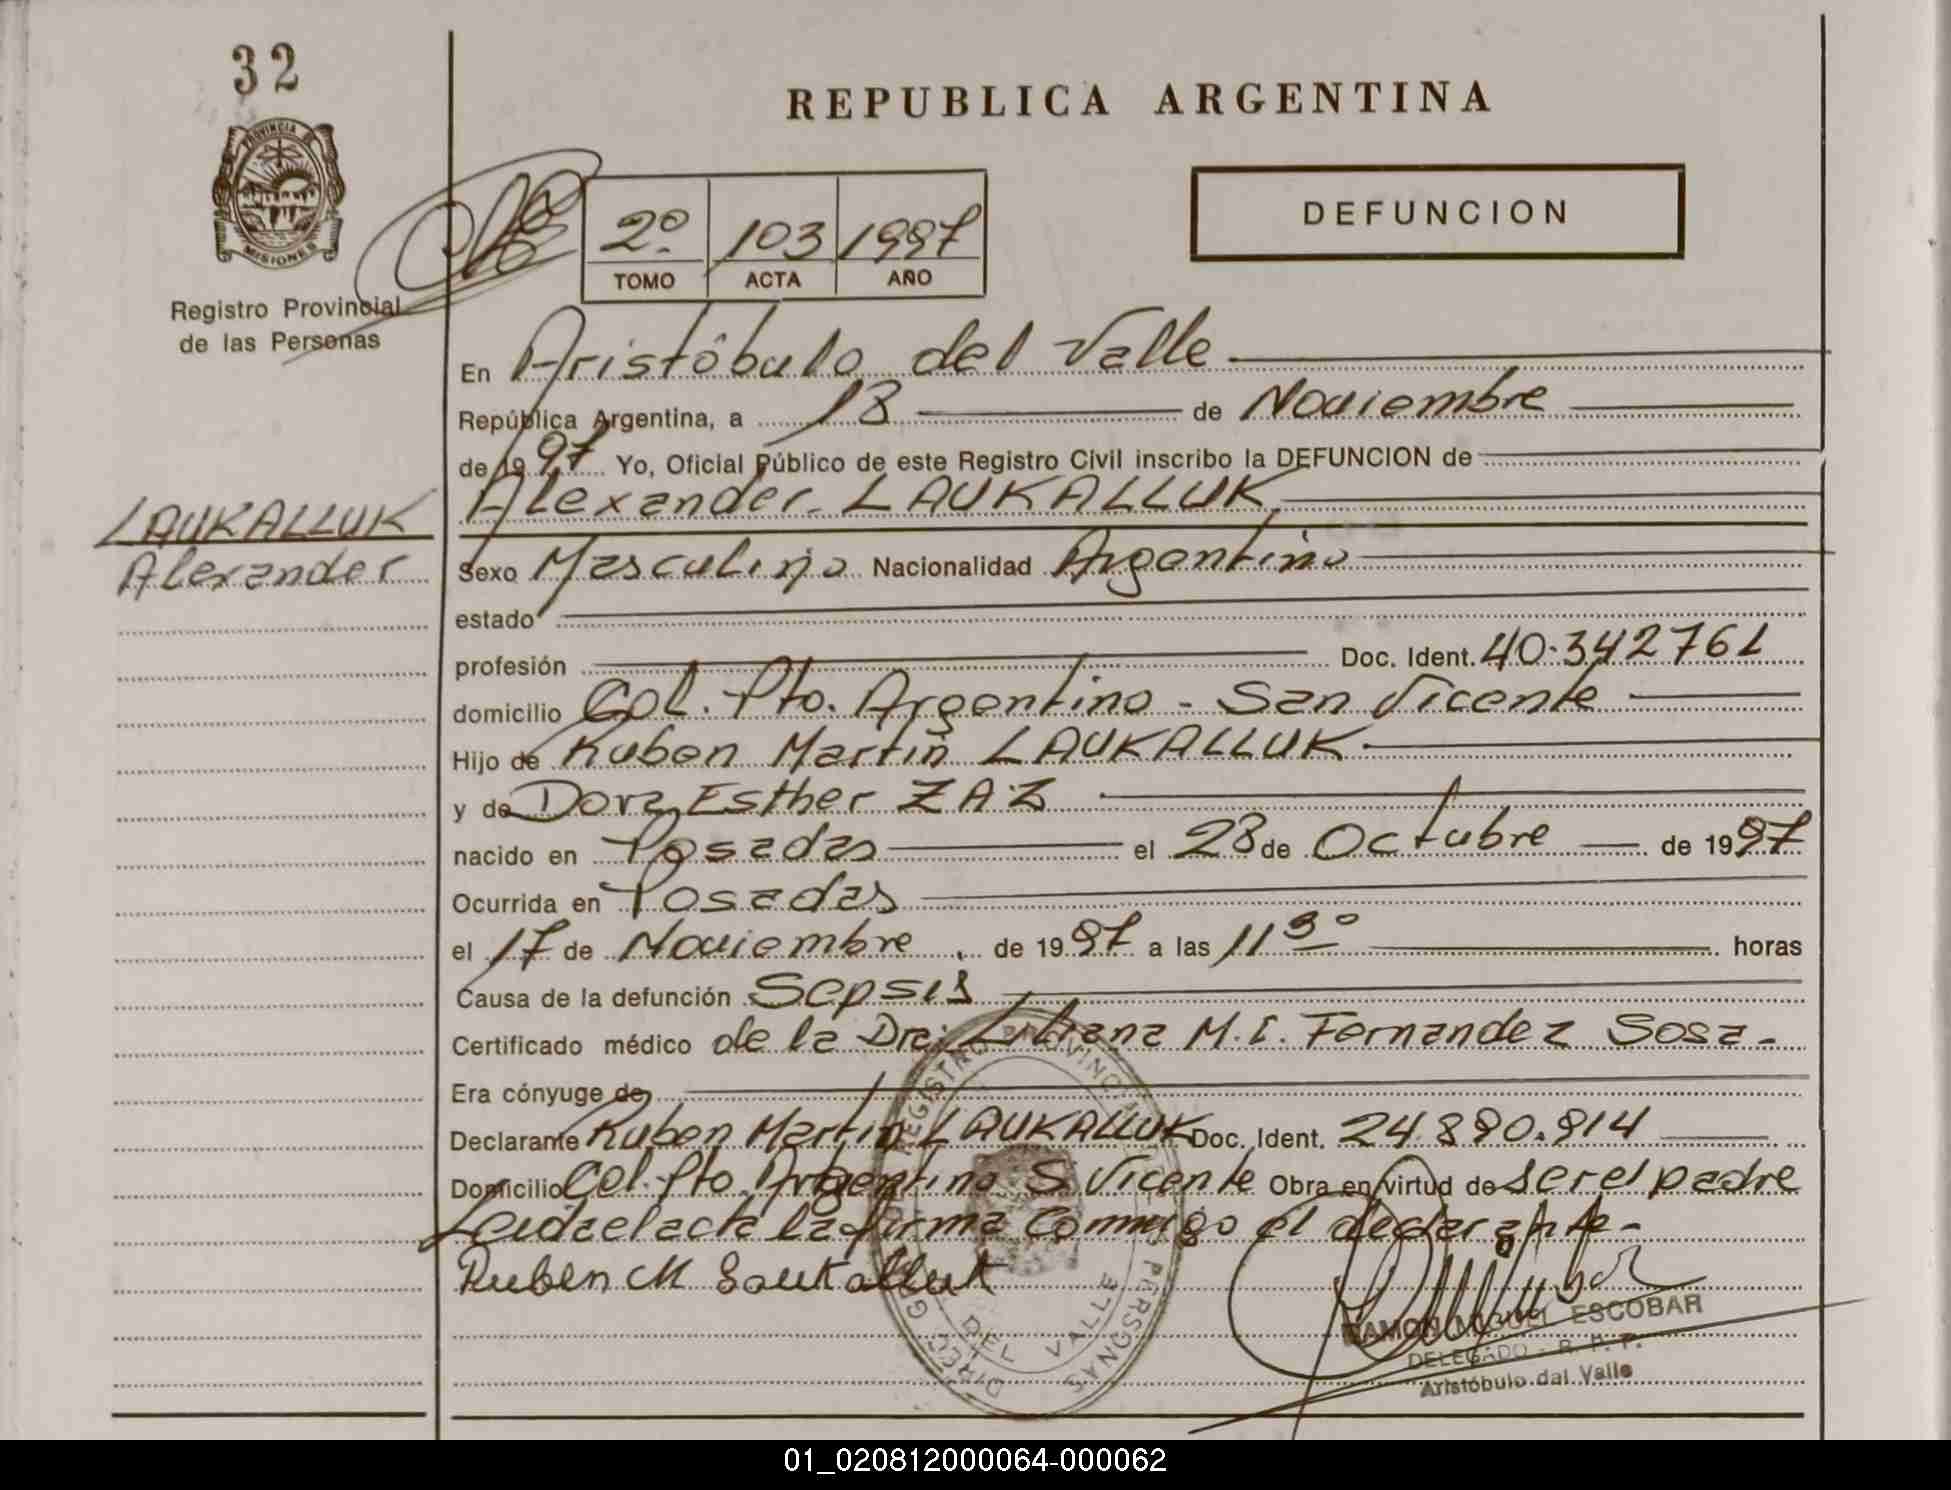 32
REPUBLICA ARGENTINA
PROVINCIA DE
MISIONES
Registro Provincial
de las Personas
2º 103 1997
TOMO ACTA AÑO
DEFUNCION
En Aristóbulo del Valle
República Argentina, a 18 de Noviembre
de 1997 Yo, Oficial Público de este Registro Civil inscribo la DEFUNCION de
LAUKALLUK
Alexander
Alexander LAUKALLUK
Sexo Masculino Nacionalidad Argentino
estado
profesión Doc. Ident. 40.342761
domicilio Col. Pto. Argentino - San Vicente
Hijo de Ruben Martin LAUKALLUK
y de Dora Esther ZAZ
nacido en Posadas el 28 de Octubre de 1997
Ocurrida en Posadas
el 17 de Noviembre de 1997 a las 11 30 horas
Causa de la defunción Sepsis
Certificado médico de la Dra: Liliana M. I. Fernandez Sosa.
Era cónyuge de
Declarante Ruben Martin LAUKALLUK Doc. Ident. 24.890.914
Domicilio Col. Pto. Argentino S. Vicente Obra en virtud de ser el padre
Leida el acta la firma Conmigo el declarante-
Ruben M Laukalluk
REGISTRO PROVINCIAL PERSONAS
DEL VALLE
RAMON MIGUEL ESCOBAR
DELEGADO - R. P. P.
Aristóbulo del Valle
01_020812000064-000062